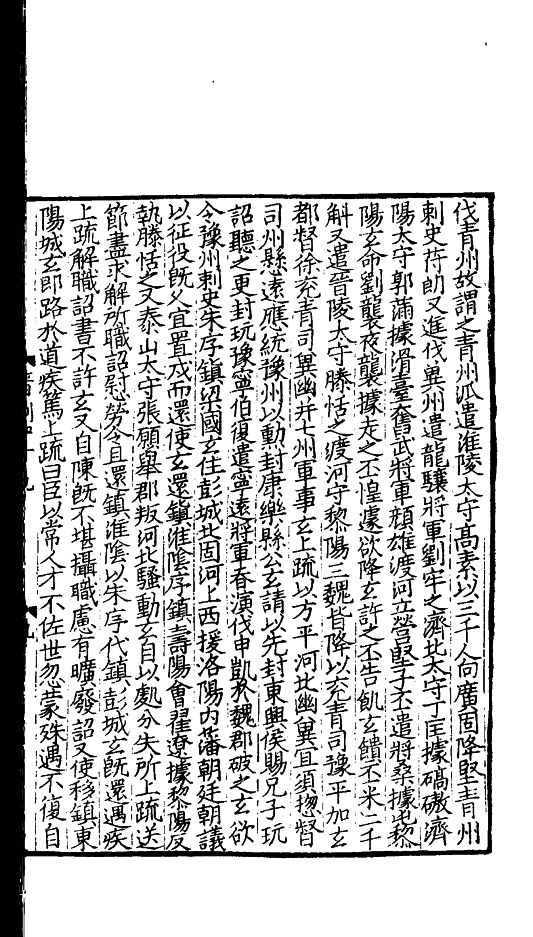 伐青州故謂之青州派遣淮陵太守高素以三千人向廣固降堅青州
刺史苻朗又進伐兾州遣龍驤將軍劉牢之濟北太守丁匡據碻磝濟
陽太守郭滿據滑臺奮武將軍顔雄渡河立營堅子丕遣將桑據屯黎
陽玄命劉襲夜襲據走之丕惶遽欲降玄許之丕告飢玄饋丕米二千
斛又遣晉陵太守滕恬之渡河守黎陽三魏皆降以兖青司豫平加玄
都督徐兖青司兾幽并七州軍事玄上疏以方平河北幽兾宜須揔督
司州懸遠應統豫州以勳封康樂縣公玄請以先封東興侯賜兄子玩
詔聽之更封玩豫寧伯復遣寧遠將軍㫪演伐申凱於魏郡破之玄欲
令豫州刺史朱序鎮梁國玄住彭城北固河上西援洛陽内藩朝廷朝議
以征役旣久宜置戍而還使玄還鎮淮陰序鎮壽陽會翟遼據黎陽反
執滕恬之又泰山太守張願舉郡叛河北騷動玄自以處分失所上疏送
節盡求解所職詔慰勞令且還鎮淮陰以朱序代鎮彭城玄旣還遇疾
上疏解職詔書不許玄又自陳旣不堪攝職慮有曠廢詔又使移鎮東
陽城玄即路於道疾篤上疏曰臣以常人才不佐世忽蒙殊遇不復自